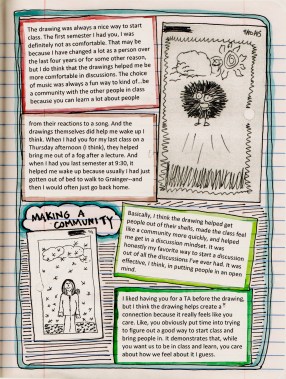 The drawing was always a nice way to start
class. The first semester I had you, I was
definitely not as comfortable. That may be
because I have changed a lot as a person over
the last four years or for some other reason,
but I do think that the drawings helped me be
more comfortable in discussions. The choice
of music was always a fun way to kind of...be
a community with the other people in class
because you can learn a lot about people
from their reactions to a song. And the
drawings themselves did help me wake up I
think. When I had you for my last class on a
Thursday afternoon (I think), they helped
bring me out of a fog after a lecture. And
when I had you last semester at 9:30, it
helped me wake up because usually I had just
gotten out of bed to walk to Grainger--and
then I would often just go back home.
MAKING A
COMMUNITY
Basically, I think the drawing helped get
people out of their shells, made the class feel
like a community more quickly, and helped
me get in a discussion mindset. It was
honestly my favorite way to start a discussion
out of all the discussions I've ever had. It was
effective, I think, in putting people in an open
mind.
I liked having you for a TA before the drawing,
but I think the drawing helps create a
connection because it really feels like you
care. Like, you obviously put time into trying
to figure out a good way to start class and
bring people in. It demonstrates that, while
you want us to be in class and learn, you care
about how we feel about it I guess.